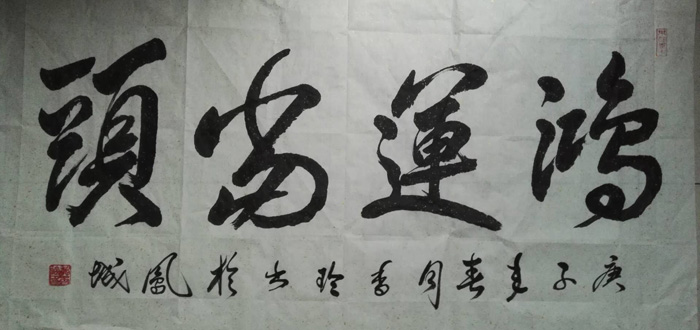 鴻運當頭
庚子年春月李玲书於鳳城